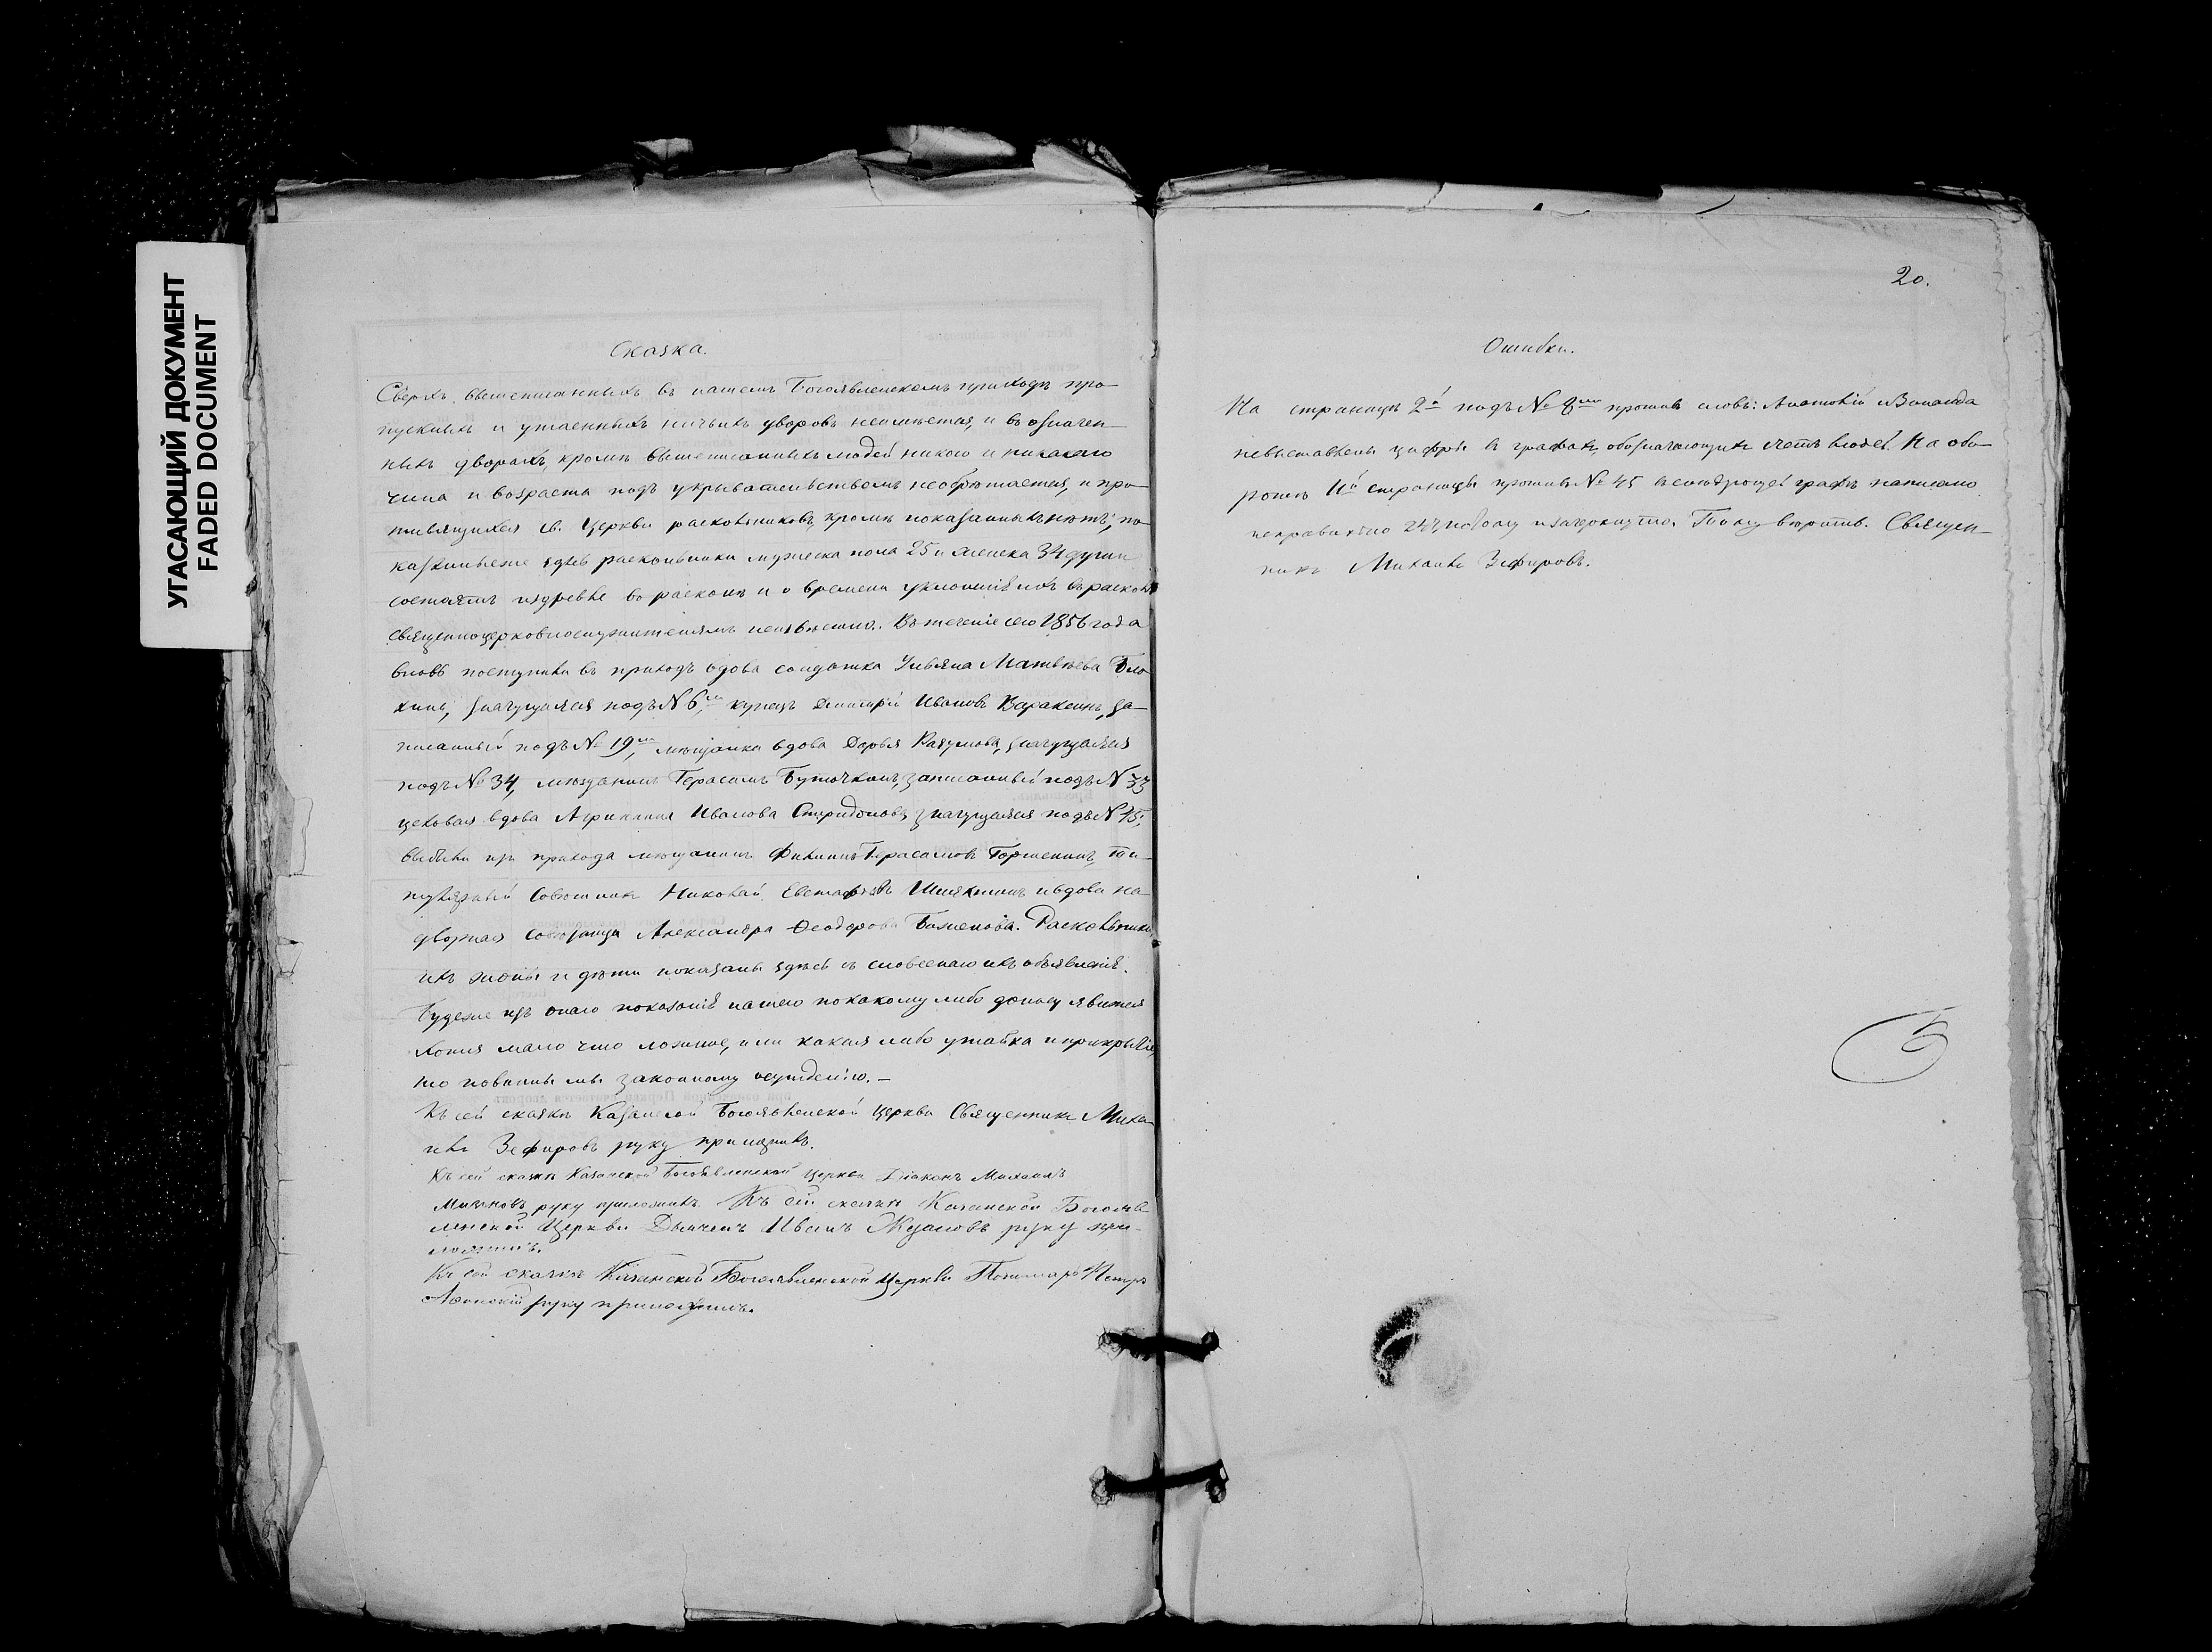 УГАСАЮЩИЙ ДОКУМЕНТ
FADED DOCUMENT
Сказка.
Сверхъ вышеписанныхъ въ нашемъ Богоявленскомъ приходѣ про-
пускныхъ и утаенныхъ ничьихъ дворовъ неимѣется, и въ означен-
ныхъ дворахъ, кромѣ вышеписанныхъ людей никого и никакого
чина и возраста подъ укрывательствомъ необрѣтается, и про-
тивящихся св. Церкви раскольниковъ, кромѣ показанныхъ нѣтъ; по-
казанныеже здѣсь раскольники мужеска пола 25 и женска 34 души
состоятъ издревле въ расколѣ и о времени уклоненія ихъ въ расколъ
священноцерковнослужителямъ неизвѣстно. Въ теченіе сего 1856 года
вновь поступили въ приходъ вдова солдатка Ульяна Матвѣева
значущаяся подъ № 6, купецъ Дмитрій Ивановъ Варакинъ, за-
писанный подъ № 19, мѣщанка вдова Дарья Разумова, значущаяся
подъ № 34, мѣщанинъ Герасимъ записанный подъ № 33
цеховая вдова Агрипина Иванова Спиридонова, значущаяся подъ № 45;
выбыли изъ прихода мѣщанинъ Филипъ Герасимовъ Ти-
тулярный Совѣтникъ Николай Евстафьевъ и вдова на-
дворная совѣтница Александра Ѳеодорова Баженова. Раскольники,
ихъ жены и дѣти показаны здѣсь съ словеснаго ихъ объявленія.
Будеже изъ онаго показанія нашего покакому либо доносу явится
хотя мало что ложное, или какая либо утайка и прикрытіе,
то повинны мы законному осужденію.—
Къ сей сказкѣ Казанской Богоявленской церкви Священникъ Миха-
илъ Зефировъ руку приложилъ.
Къ сей сказкѣ Казанской Богоявленской Церкви Діаконъ Михаилъ
руку приложилъ. Къ сей сказкѣ Казанской Богоявле
нской Церкви Дьячекъ Иванъ руку при-
ложилъ.
Къ сей сказкѣ Казанской Богоявленской Церкви Пономарь Петръ
руку приложилъ.
20.
Ошибки.
На страницѣ 2й подъ № 8мъ противъ словъ: Анатолій и Зинаида
невыставлены цифры въ графахъ, обозначающихъ лѣта людей. На обо-
ротѣ страницы противъ № 45 въ слѣдующей графѣ написано
неправильно и зачеркнуто. Священ-
никъ Михаилъ Зефировъ.